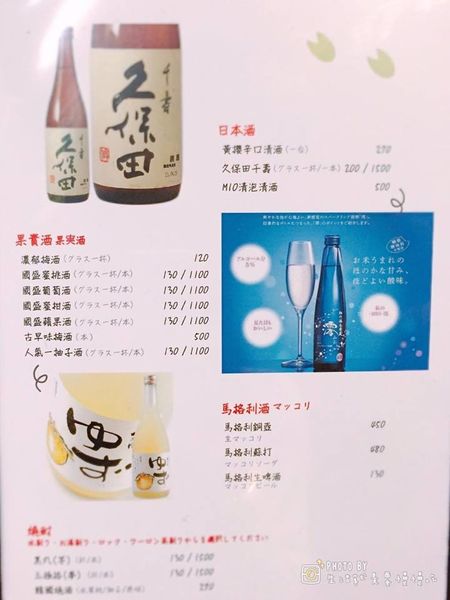 千寿
久保田
千寿
久保田
清酒
日本酒
黃櫻辛口清酒(一合) 290
久保田千壽(グラス一杯/一本) 200 / 1500
MIO清泡清酒 500
果實酒 果実酒
濃郁梅酒(グラス一杯) 120
國盛蜜桃酒(グラス一杯/本) 130 / 1100
國盛葡萄酒(グラス一杯/本) 130 / 1100
國盛蜜柑酒(グラス一杯/本) 130 / 1100
國盛蘋果酒(グラス一杯/本) 130 / 1100
古早味梅酒(本) 500
人氣一柚子酒(グラス一杯/本) 130 / 1100
アルコール分
5%
お米うまれの
ほのかな甘み、
ほどよい酸味。
澪
ゆず
ゆず
馬格利酒 マッコリ
馬格利銅壺 450
生マッコリ
馬格利蘇打 480
マッコリソーダ
馬格利生啤酒 130
マッコリビール
燒酎
水割り・お湯割り・ロック・ウーロン茶割りからを選択してください
130 / 1500
130 / 1500
韓國燒酒 290
PHOTO BY